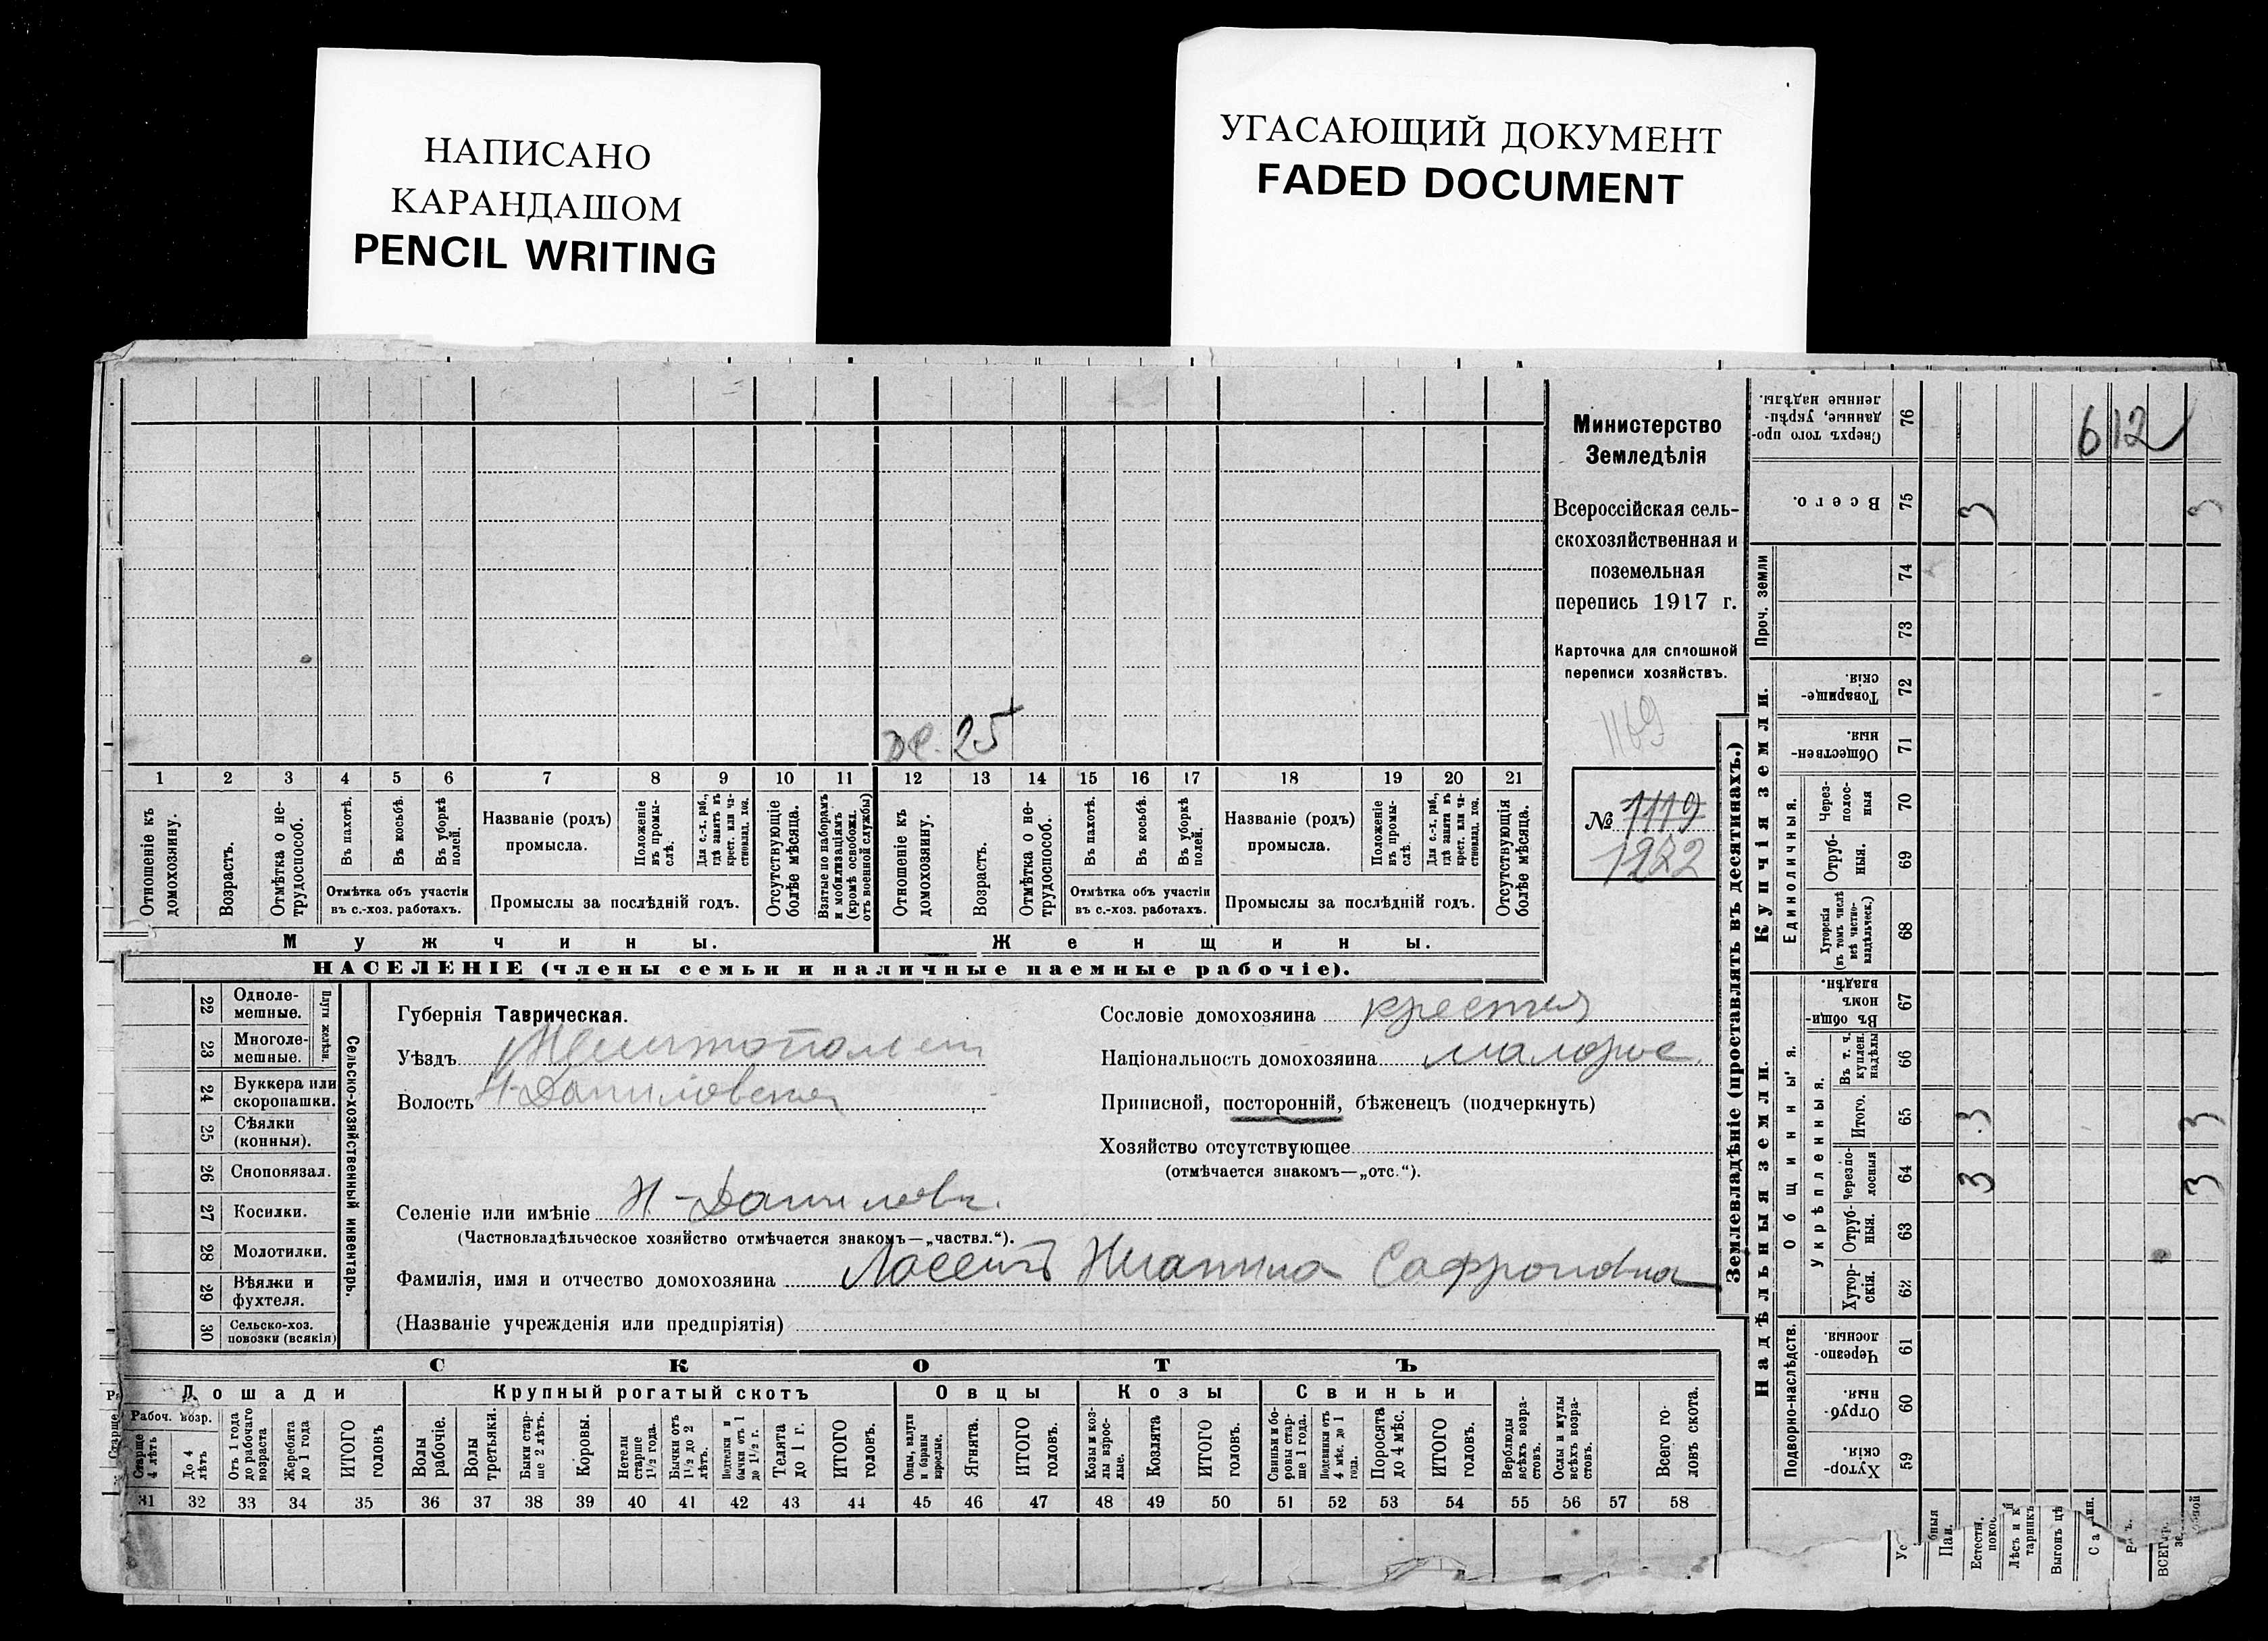 НАПИСАНО
КАРАНДАШОМ
PENCIL WRITING
УГАСАЮЩИЙ ДОКУМЕНТ
FADED DOCUMENT
Министерство
Земледѣлія
Всероссійская сель-
скохозяйственная и
поземельная
перепись 1917 г.
Карточка для сплошной
переписи хозяйствъ.
1169
№ 1119
1222
25
1 2 3 4 5 6 7 8 9 10 11 12 13 14 15 16 17 18 19 20 21
Отношеніе къ домохозяину.
Возрастъ.
Отмѣтка о не-трудоспособ.
Въ пахотѣ.
Въ косьбѣ.
Въ уборкѣ полей.
Отмѣтка объ участіи
въ с.-хоз. работахъ.
Названіе (родъ)
промысла.
Положеніе въ промы-слѣ.
Для с.-х. раб., гдѣ занятъ въ крест. или ча-стновлад. хоз.
Промыслы за послѣдній годъ.
Отсутствующіе болѣе мѣсяца.
Взятые по наборамъ и мобилизаціямъ (кромѣ освобожд. отъ военной службы)
Отношеніе къ домохозяину.
Возрастъ.
Отмѣтка о не-трудоспособ.
Въ пахотѣ.
Въ косьбѣ.
Въ уборкѣ полей.
Отмѣтка объ участіи
въ с.-хоз. работахъ.
Названіе (родъ)
промысла.
Положеніе въ промы-слѣ.
Для с.-х. раб., гдѣ занята въ крест. или ча-стновлад. хоз.
Промыслы за послѣдній годъ.
Отсутствующія болѣе мѣсяца.
Мужчины.
Женщины.
НАСЕЛЕНІЕ (члены семьи и наличные наемные рабочіе).
22 Одноле-мешные.
23 Многоле-мешные.
Плуги желѣзн.
24 Буккера или скоропашки.
25 Сѣялки (конныя).
26 Сноповязал.
27 Косилки.
28 Молотилки.
29 Вѣялки и фухтеля.
30 Сельско-хоз. повозки (всякія)
Сельско-хозяйственный инвентарь.
Губернія Таврическая.
Уѣздъ Мелитополь
Волость Н-Даниловская
Селеніе или имѣніе Н-Даниловк.
(Частновладѣльческое хозяйство отмѣчается знакомъ—„частвл.“).
Фамилія, имя и отчество домохозяина Сафроновна
(Названіе учрежденія или предпріятія)
Сословіе домохозяина крестья
Національность домохозяина малорос.
Приписной, посторонній, бѣженецъ (подчеркнуть)
Хозяйство отсутствующее
(отмѣчается знакомъ—„отс.“).
СКОТЪ
Лошади
Крупный рогатый скотъ
Овцы
Козы
Свиньи
Рабоч. возр.
Старше 4 лѣтъ
До 4 лѣтъ
Отъ 1 года до рабочаго возраста
Жеребята до 1 года
ИТОГО головъ
Волы рабочіе.
Волы третьяки.
Быки стар-ше 2 лѣтъ.
Коровы.
Нетели старше 1½ года.
Бычки отъ 1½ до 2 лѣтъ.
Подтелки и бычки отъ 1 до 1½ г.
Телята до 1 г.
ИТОГО головъ.
Овцы, валухи и бараны взрослые.
Ягнята.
ИТОГО головъ.
Козы и коз-лы взрос-лые.
Козлята
ИТОГО головъ.
Свиньи и бо-ровы стар-ше 1 года.
Подсвинки отъ 4 мѣс. до 1 года.
Поросята до 4 мѣс.
ИТОГО головъ.
Верблюды всѣхъ возра-стовъ.
Ослы и мулы всѣхъ возра-стовъ.
Всего го-ловъ скота.
31 32 33 34 35 36 37 38 39 40 41 42 43 44 45 46 47 48 49 50 51 52 53 54 55 56 57 58
Землевладѣніе (проставлять въ десятинахъ.)
Купчія земли.
Надѣльныя земли.
Сверхъ того про-данные, укрѣп-ленные надѣлы. 76 612
Всего. 75 3 3
Проч. земли 74
73
Товарище-скія. 72
Обществен-ныя. 71
Единоличныя.
Через-полос-ныя 70
Отруб-ныя. 69
Хуторскія (въ томъ числѣ всѣ частно-владѣльческ.) 68
Общинныя.
Въ общин-номъ владѣн. 67
Укрѣпленныя.
Въ т. ч. куплен. надѣлы 66
Итого. 65 3 3
Черезпо-лосныя 64 3 3
Отруб-ныя. 63
Хутор-скія. 62
Подворно-наслѣдств.
Черезпо-лосныя 61
Отруб-ныя. 60
Хутор-скія. 59